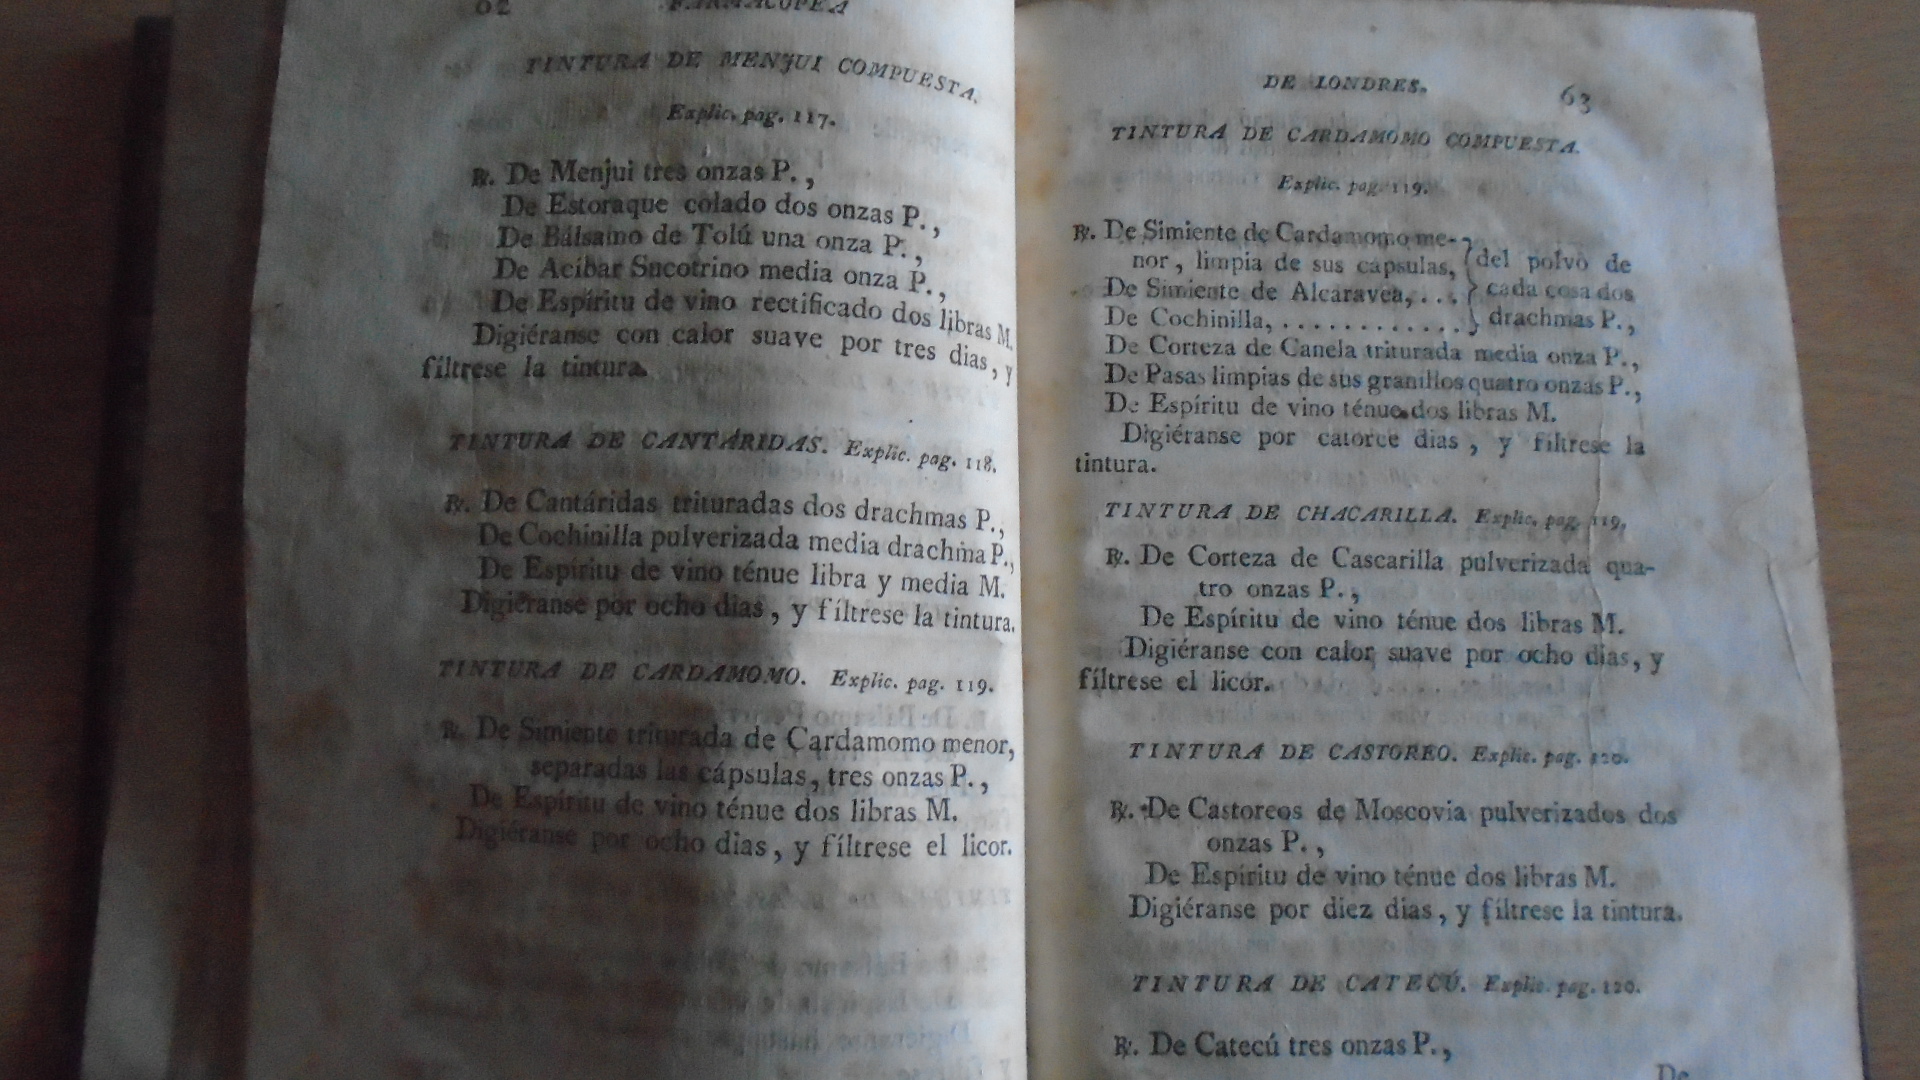 62 FARMACOPEA
TINTURA DE MENJUI COMPUESTA.
Explic. pag. 117.
℞. De Menjui tres onzas P.,
De Estoraque colado dos onzas P.,
De Bálsamo de Tolú una onza P.,
De Acibar Sucotrino media onza P.,
De Espíritu de vino rectificado dos libras M.
Digiéranse con calor suave por tres dias, y
fíltrese la tintura.
TINTURA DE CANTÁRIDAS. Explic. pag. 118.
℞. De Cantáridas trituradas dos drachmas P.,
De Cochinilla pulverizada media drachma P.,
De Espíritu de vino ténue libra y media M.
Digiéranse por ocho dias, y fíltrese la tintura.
TINTURA DE CARDAMOMO. Explic. pag. 119.
℞. De Simiente triturada de Cardamomo menor,
separadas las cápsulas, tres onzas P.,
De Espíritu de vino ténue dos libras M.
Digiéranse por ocho dias, y fíltrese el licor.
DE LONDRES. 63
TINTURA DE CARDAMOMO COMPUESTA.
Explic. pag. 119.
℞. De Simiente de Cardamomo me-
nor, limpia de sus cápsulas, del polvo de
De Simiente de Alcaravea, . . . cada cosa dos
De Cochinilla, . . . . . . . . . . . . drachmas P.,
De Corteza de Canela triturada media onza P.,
De Pasas limpias de sus granillos quatro onzas P.,
De Espíritu de vino ténue dos libras M.
Digiéranse por catorce dias, y fíltrese la
tintura.
TINTURA DE CHACARILLA. Explic. pag. 119.
℞. De Corteza de Cascarilla pulverizada qua-
tro onzas P.,
De Espíritu de vino ténue dos libras M.
Digiéranse con calor suave por ocho dias, y
fíltrese el licor.
TINTURA DE CASTOREO. Explic. pag. 120.
℞. De Castoreos de Moscovia pulverizados dos
onzas P.,
De Espíritu de vino ténue dos libras M.
Digiéranse por diez dias, y fíltrese la tintura.
TINTURA DE CATECÚ. Explic. pag. 120.
℞. De Catecú tres onzas P.,
De